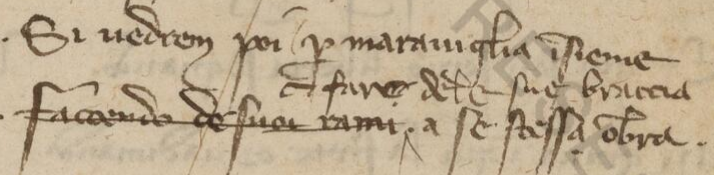 . Si uedrem poi ꝑ marauiglia ĩsieme
⁊ far dele sue braccia
. faccendo de suoi rami . a se stessa obra .